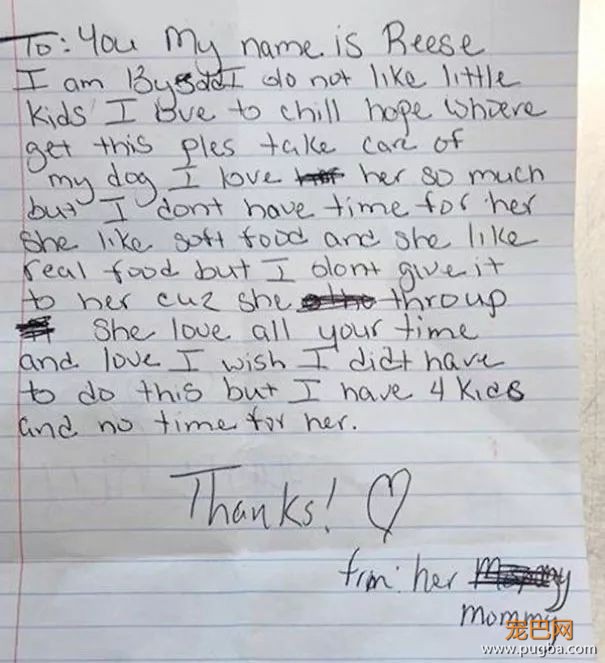 To: You My name is Reese
I am 13ys old I do not like little
kids I love to chill hope whoere
get this ples take care of
my dog I love her so much
but I dont have time for her
she like soft food and she like
real food but I dont give it
to her cuz she throup
She love all your time
and love I wish I didt have
to do this but I have 4 kids
and no time for her.
Thanks! ♡
frm: her
mommy
宠巴网
www.pugba.com